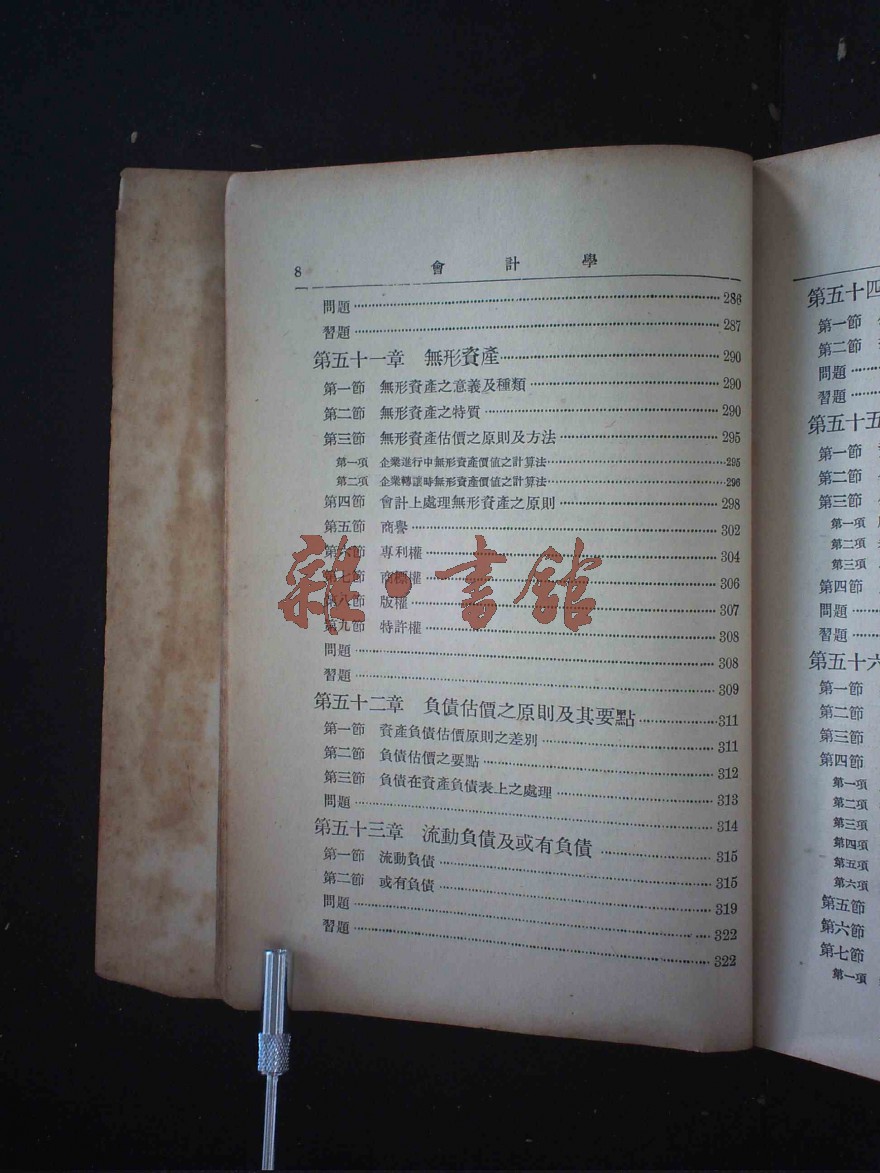 8 會計學
問題 286
習題 287
第五十一章 無形資產 290
第一節 無形資產之意義及種類 290
第二節 無形資產之特質 290
第三節 無形資產估價之原則及方法 295
第一項 企業進行中無形資產價值之計算法 295
第二項 企業轉讓時無形資產價值之計算法 296
第四節 會計上處理無形資產之原則 298
第五節 商譽 302
第六節 專利權 304
第七節 商標權 306
第八節 版權 307
第九節 特許權 308
問題 308
習題 309
第五十二章 負債估價之原則及其要點 311
第一節 資產負債估價原則之差別 311
第二節 負債估價之要點 312
第三節 負債在資產負債表上之處理 313
問題 314
第五十三章 流動負債及或有負債 315
第一節 流動負債 315
第二節 或有負債 319
問題 322
習題 322
雜·書館
第五十四
第一節
第二節
問題
習題
第五十五
第一節
第二節
第三節
第一項
第二項
第三項
第四節
問題
習題
第五十六
第一節
第二節
第三節
第四節
第一項
第二項
第三項
第四項
第五項
第六項
第五節
第六節
第七節
第一項